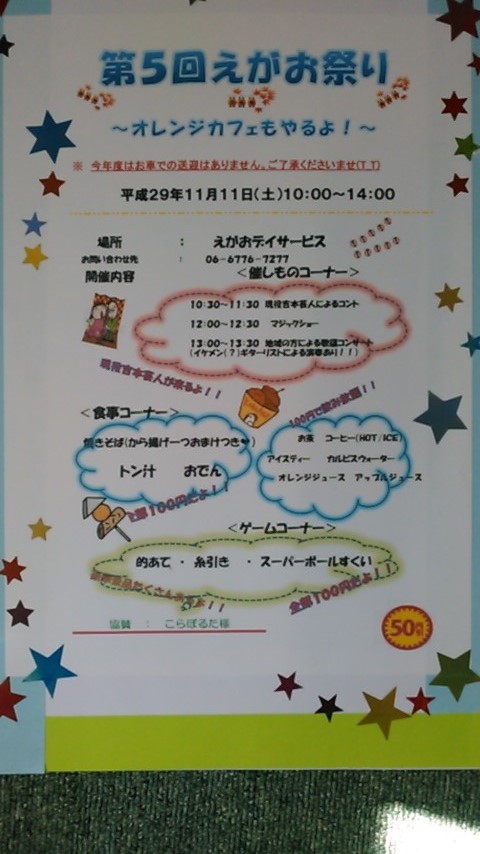 第5回えがお祭り
～オレンジカフェもやるよ！～
※ 今年度はお車での送迎はありません。ご了承くださいませ(T_T)
平成29年11月11日(土)10:00～14:00
場所 : えがおデイサービス
お問い合わせ先 : 06-6776-7277
開催内容
＜催しものコーナー＞
10:30～11:30 現役吉本芸人によるコント
12:00～12:30 マジックショー
13:00～13:30 地域の方による歌謡コンサート
(イケメン(?)ギターリストによる演奏あり！！)
現役吉本芸人が来るよ！！
100円で飲み放題！！
＜食事コーナー＞
焼きそば(から揚げ一つおまけつき❤)
トン汁 おでん
全部100円だよ！！
お茶 コーヒー(HOT/ICE)
アイスティー カルピスウォーター
オレンジジュース アップルジュース
＜ゲームコーナー＞
的あて ・ 糸引き ・ スーパーボールすくい
たくさんあるよ！！
全部100円だよ！！
協賛 : こらぼるた様
50